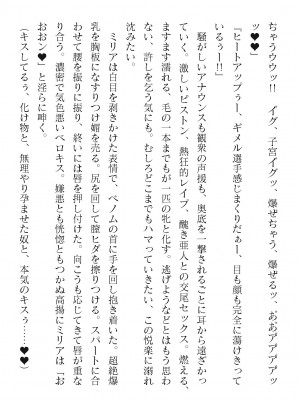 ちゃうウウッ!!　イグ、子宮イグッ、爆ぜちゃう、爆ぜるッ、おおアアアアア
ッッ♥♥」
『ヒートアップぅー、ギメル選手感じまくりだぁー、目も顔も完全に蕩けきって
いるぅー!!』
　騒がしいアナウンスも観衆の声援も、奥底を一撃されるごとに耳から遠ざかっ
ていく。激しいピストン、熱狂的レイプ、醜き亜人との交尾セックス。燃える、
ますます濡れる、毛の一本までもが一匹の牝と化す。逃げようなどとはもう思わ
ない、許しを乞う気にも。むしろどこまでもハマっていきたい、この悦楽に溺れ
沈みたい。
　ミリアは白目を剥きかけた表情で、ペノムの首に手を回し抱き着いた。超絶爆
乳を胸板になすりつけ媚を売る。尻を回して膣ヒダを擦りつける。スパートに合
わせて腰を振りに振り、終いには唇を押し付けた。向こうも応じてきて唇が重な
り合う。濃密で気色悪いベロキス。嫌悪とも恍惚ともつかぬ高揚にミリアは「お
おおン♥」と淫らに呻く。
（キスしてるぅ、化け物と、無理やり孕ませた奴と、本気のキスぅ……♥♥）